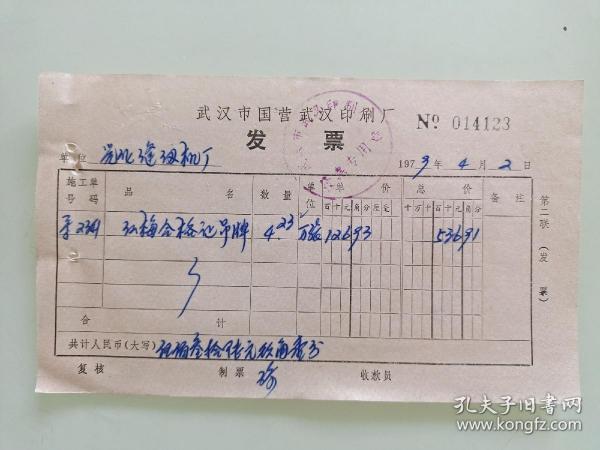 武汉市国营武汉印刷厂
发 票
№ 014123
单位 缝纫机厂
1973年4月2日
施工单号码 品名 数量 单位 单价 总价 备注
百十元角分厘毫 千万千百十元角分
合格证吊牌 4.23 万张 126 93 536 91
合计
共计人民币(大写) 伍佰叁拾陆元玖角壹分
复核 制票 收款员
第二联(发票)
孔夫子旧书网
www.kongfz.com